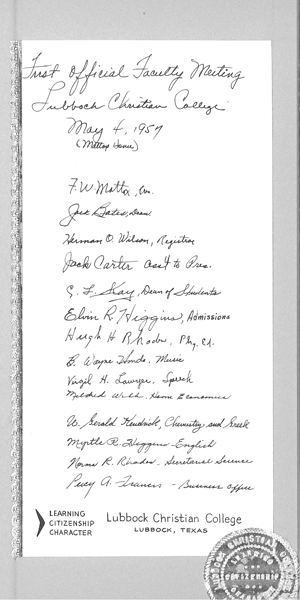 First Official Faculty Meeting
Lubbock Christian College
May 4, 1957
(Mattox Home)
F. W. Mattox,
Jack Bates, Dean
Herman O. Wilson, Registrar
Jack Carter Ass't to Pres.
Dean of Students
Elvin R. Higgins, Admissions
Hugh H Rhodes, Phy. Ed.
B. Wayne Hinds, Music
Virgil H. Lawyer, Speech
Mildred Home Economics
W. Gerald Kendrick, Chemistry and Greek
Myrtle R. Higgins - English
Norma R. Rhodes - Secretarial Science
Percy A. Francis - Business Office
LEARNING
CITIZENSHIP
CHARACTER
Lubbock Christian College
LUBBOCK, TEXAS
LUBBOCK CHRISTIAN
CITIZENSHIP